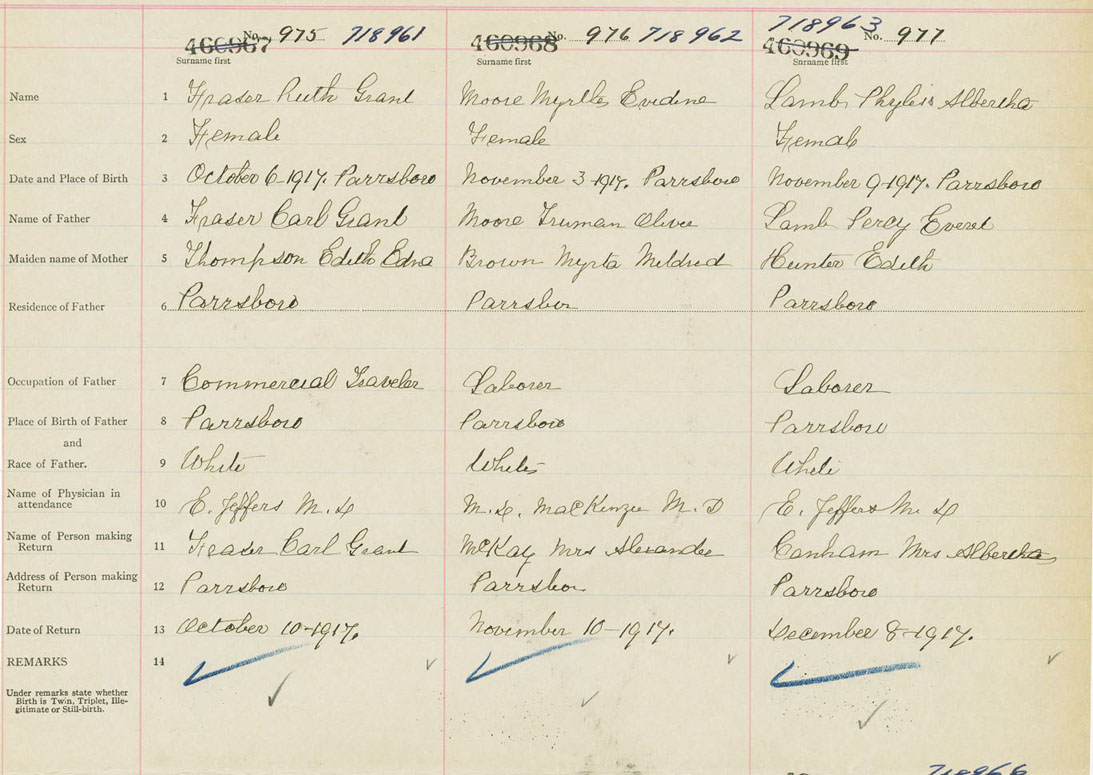 718963
460967 No. 975 718961 460968 No. 976 718962 460969 No. 977
Surname first Surname first Surname first
Name 1 Fraser Ruth Grant Moore Myrtle Evidine Lamb Phyliss Albertha
Sex 2 Female Female Female
Date and Place of Birth 3 October 6-1917. Parrsboro November 3-1917. Parrsboro November 9-1917. Parrsboro
Name of Father 4 Fraser Carl Grant Moore Truman Oliver Lamb Percy Everet
Maiden name of Mother 5 Thompson Edith Edna Brown Myrta Mildred Hunter Edith
Residence of Father 6 Parrsboro Parrsboro Parrsboro
Occupation of Father 7 Commercial Traveler Laborer Laborer
Place of Birth of Father 8 Parrsboro Parrsboro Parrsboro
and
Race of Father. 9 White White White
Name of Physician in
attendance 10 E. Jeffers M.D M.D. MacKenzie M.D E. Jeffers M.D
Name of Person making
Return 11 Fraser Carl Grant McKay Mrs Alexander Canham Mrs Albertha
Address of Person making
Return 12 Parrsboro Parrsboro Parrsboro
Date of Return 13 October 10-1917. November 10-1917. December 8-1917.
REMARKS 14
Under remarks state whether
Birth is Twin, Triplet, Ille-
gitimate or Still-birth.